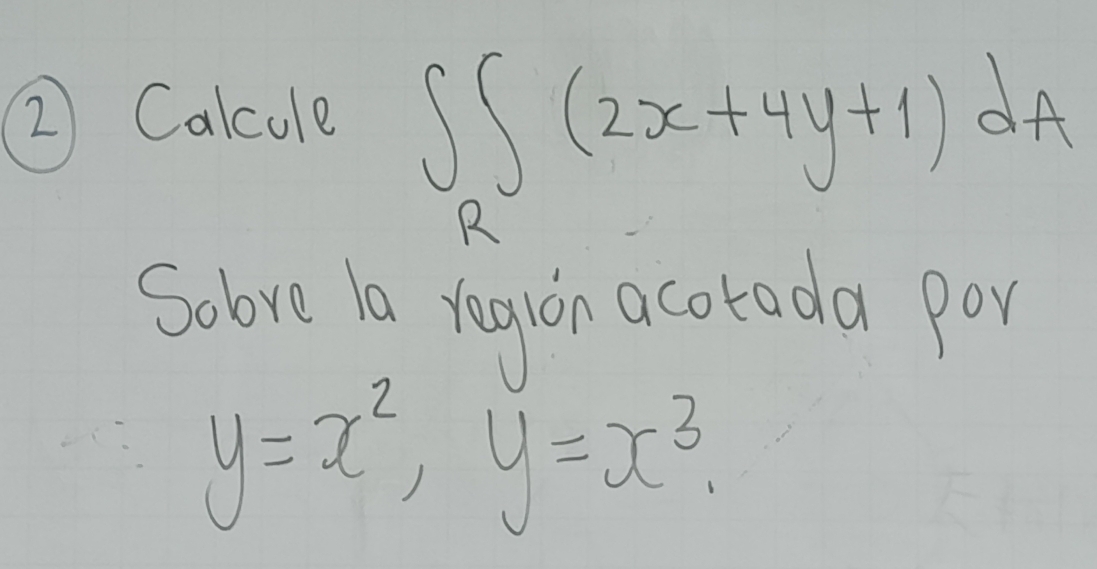 ② Calcule ∬_R (2x+4y+1) dA
Sobre la región acotada por
y=x², y=x³.